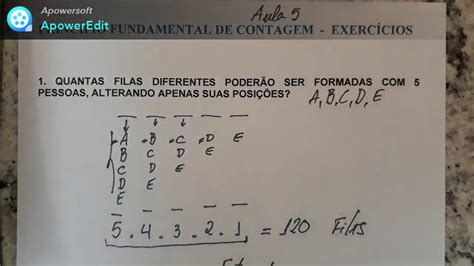 Apowersoft
ApowerEdit
Aula 5
FUNDAMENTAL DE CONTAGEM - EXERCÍCIOS
1. QUANTAS FILAS DIFERENTES PODERÃO SER FORMADAS COM 5
PESSOAS, ALTERANDO APENAS SUAS POSIÇÕES? A, B, C, D, E
A B C D E
B C D E
C D E
D E
E
5 . 4 . 3 . 2 . 1 = 120 Filas